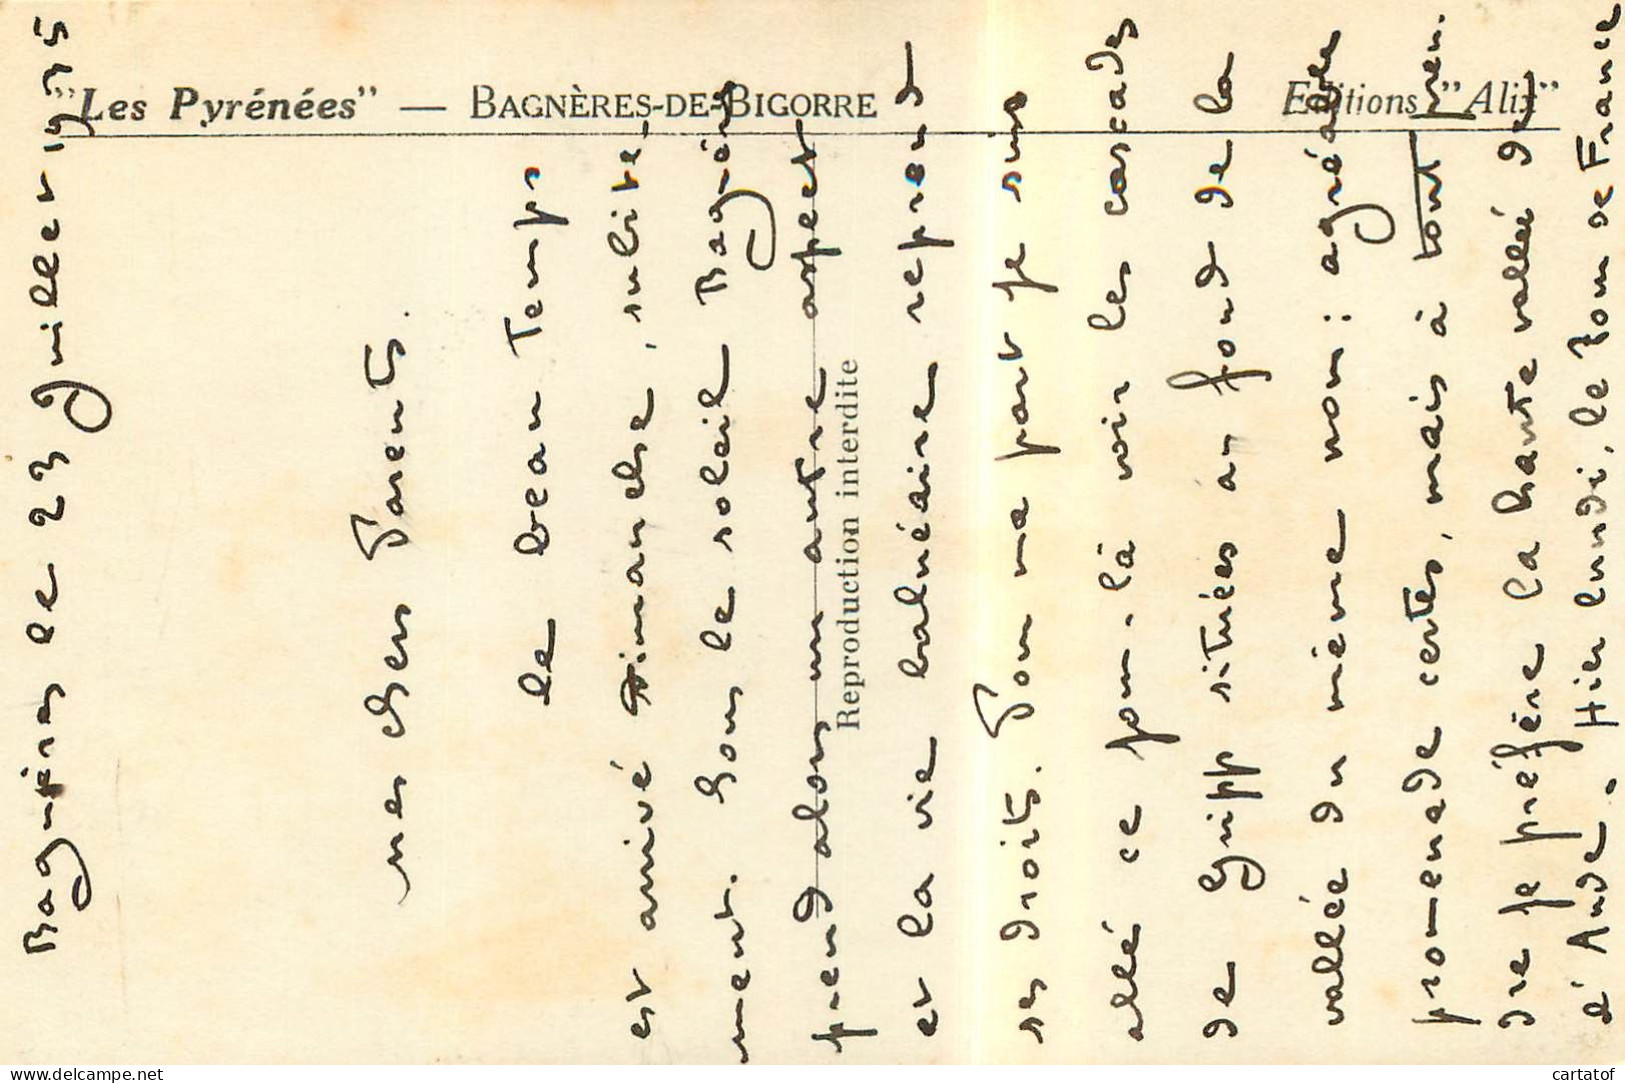 "Les Pyrénées" — BAGNÈRES-DE-BIGORRE
Editions "Alix"
Reproduction interdite
Bagnères le 23 Juillet 1935
mes chers Parents.
le beau temps
est arrivé dimanche, subite-
ment. Sous le soleil Bagnères
prend alors un autre aspect
et la vie balnéaire reprend
ses droits. Pour ma part je suis
allé ce jour-là voir les cascades
de Gripp situées au fond de la
vallée du même nom : agréable
promenade certes, mais à tout pren.
dre je préfère la haute vallée de
l'Aude. Hier lundi, le Tour de France
www.delcampe.net
cartatof